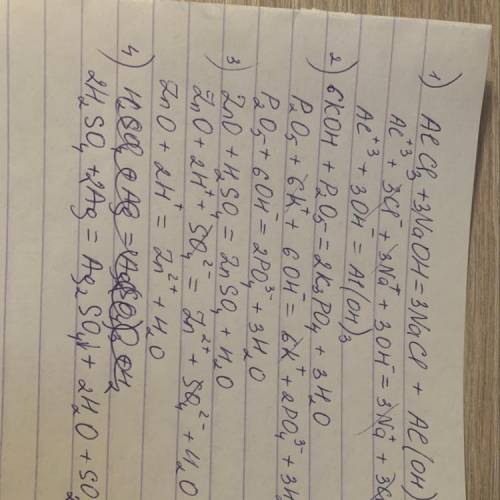 1) AlCl₃ + 3NaOH = 3NaCl + Al(OH)
Al⁺³ + 3Cl⁻ + 3Na⁺ + 3OH⁻ = 3Na⁺ + 3Cl
Al⁺³ + 3OH⁻ = Al(OH)₃
2) 6KOH + P₂O₅ = 2K₃PO₄ + 3H₂O
P₂O₅ + 6K⁺ + 6OH⁻ = 6K⁺ + 2PO₄³⁻ + 3H
P₂O₅ + 6OH⁻ = 2PO₄³⁻ + 3H₂O
3) ZnO + H₂SO₄ = ZnSO₄ + H₂O
ZnO + 2H⁺ + SO₄²⁻ = Zn²⁺ + SO₄²⁻ + H₂O
ZnO + 2H⁺ = Zn²⁺ + H₂O
4) H₂SO₄ + Ag =
2H₂SO₄ + 2Ag = Ag₂SO₄ + 2H₂O + SO₂